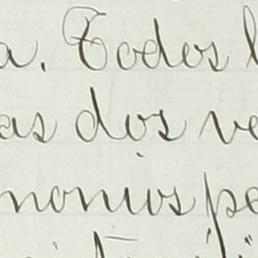 a. Todos
as dos ve
monios pe